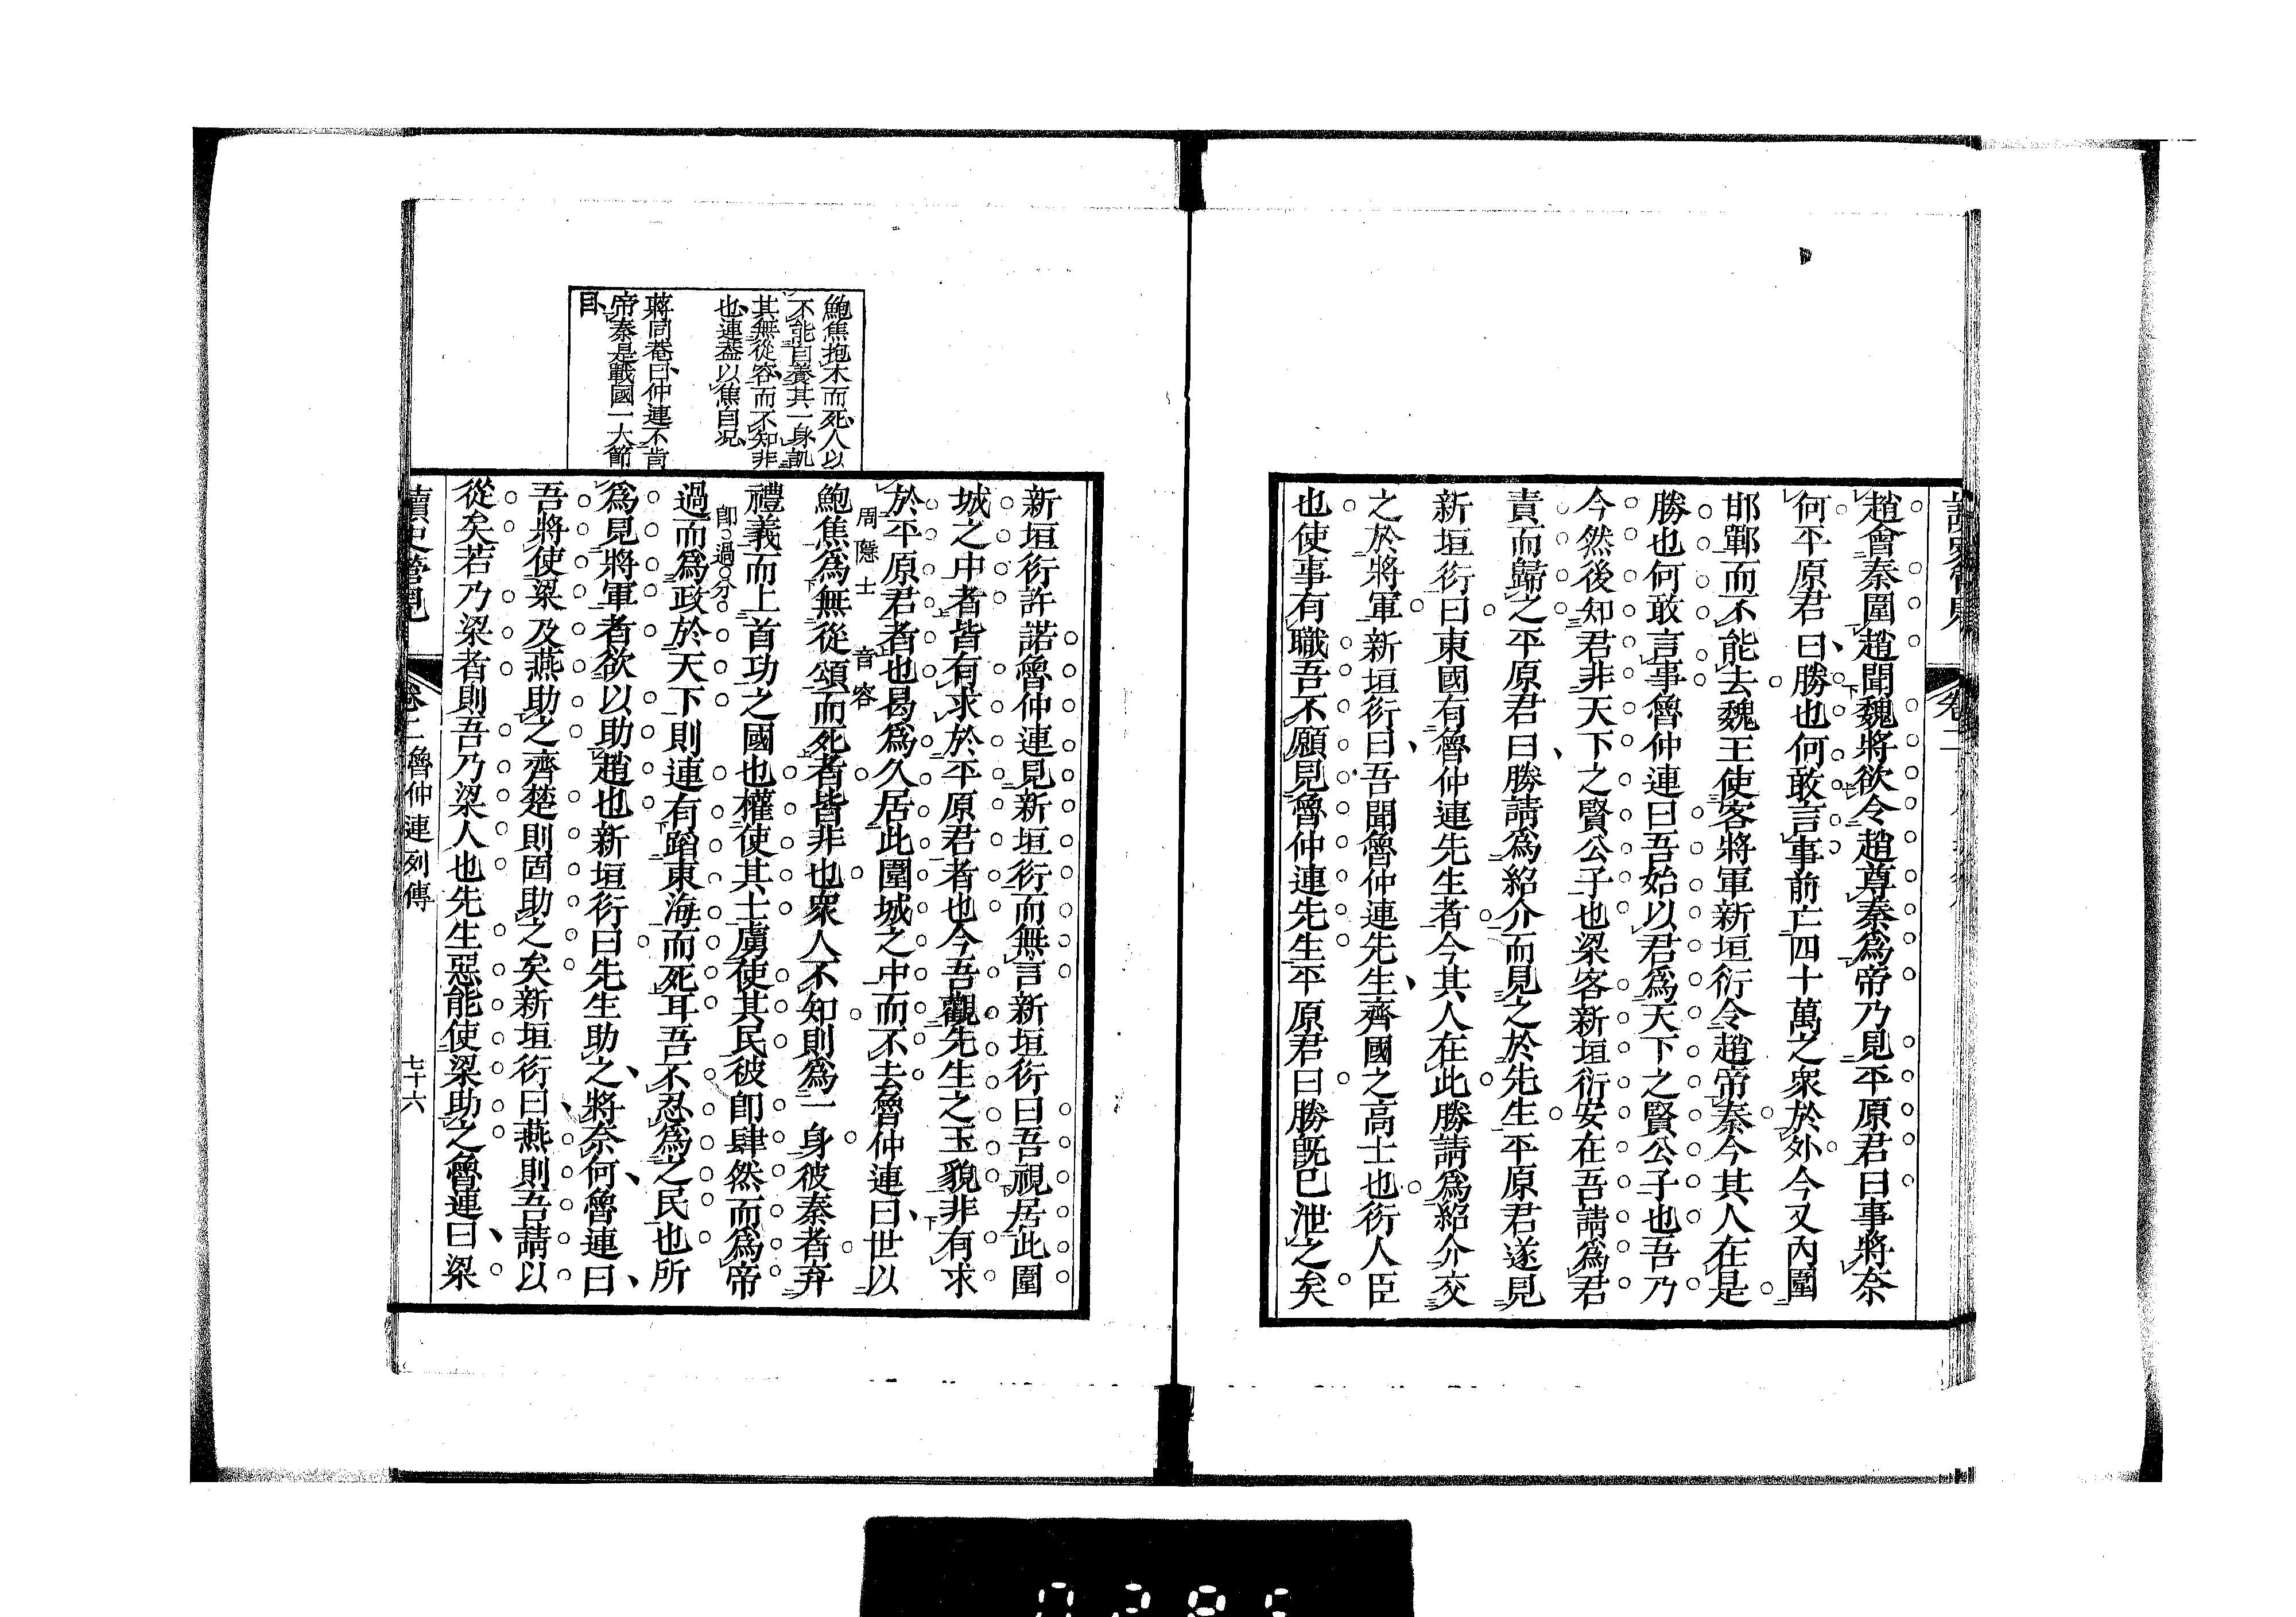 趙會秦圍趙聞魏將欲令趙尊秦爲帝乃見平原君曰事將奈
何平原君曰勝也何敢言事前亡四十萬之衆於外今又內圍
邯鄲而不能去魏王使客將軍新垣衍令趙帝秦今其人在是
勝也何敢言事魯仲連曰吾始以君爲天下之賢公子也吾乃
今然後知君非天下之賢公子也梁客新垣衍安在吾請爲君
責而歸之平原君曰勝請爲紹介而見之於先生平原君遂見
新垣衍曰東國有魯仲連先生者今其人在此勝請爲紹介交
之於將軍新垣衍曰吾聞魯仲連先生齊國之高士也衍人臣
也使事有職吾不願見魯仲連先生平原君曰勝旣已泄之矣
鮑焦抱木而死人以
不能自養其一身譏
其無從容而不知非
也連葢以焦自況
蔣同菴曰仲連不肯
帝秦是戰國一大節
目
新垣衍許諾魯仲連見新垣衍而無言新垣衍曰吾視居此圍
城之中者皆有求於平原君者也今吾觀先生之玉貌非有求
於平原君者也曷爲久居此圍城之中而不去魯仲連曰世以
周隱士 音容
鮑焦爲無從頌而死者皆非也衆人不知則爲一身彼秦者弃
禮義而上首功之國也權使其士虜使其民彼卽肆然而爲帝
卽過分
過而爲政於天下則連有蹈東海而死耳吾不忍爲之民也所
爲見將軍者欲以助趙也新垣衍曰先生助之將奈何魯連曰
吾將使梁及燕助之齊楚則固助之矣新垣衍曰燕則吾請以
從矣若乃梁者則吾乃梁人也先生惡能使梁助之魯連曰梁
讀史管見 卷二 魯仲連列傳 七十六